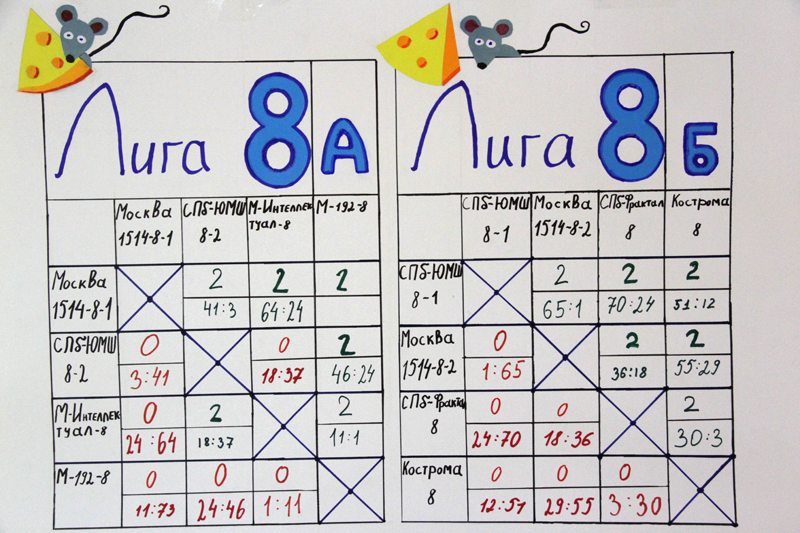 Лига 8 А
Москва СПб-ЮМШ М-Интеллек М-192-8
1514-8-1 8-2 туал-8
Москва 2 2 2
1514-8-1 41:3 64:24
СПб-ЮМШ 0 0 2
8-2 3:41 18:37 46:24
М-Интеллек 0 2 2
туал-8 24:64 18:37 11:1
М-192-8 0 0 0
11:73 24:46 1:11
Лига 8 Б
СПб-ЮМШ Москва СПб-Фрактал Кострома
8-1 1514-8-2 8 8
СПб-ЮМШ 2 2 2
8-1 65:1 70:24 51:12
Москва 0 2 2
1514-8-2 1:65 36:18 55:29
СПб-Фрактал 0 0 2
8 24:70 18:36 30:3
Кострома 0 0 0
8 12:51 29:55 3:30